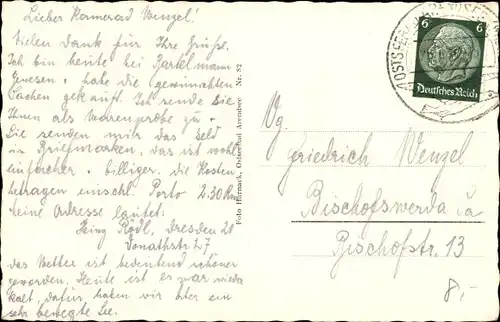 Lieber Kamerad Wenzel!
Vielen Dank für Ihre Grüße.
Ich bin heute bei Bartelmann
gewesen u. habe die gewünschten
Sachen gekauft. Ich sende sie
Ihnen als Warenprobe zu.
Sie senden mir das Geld
in Briefmarken, das ist wohl
einfacher u. billiger. Die Kosten
betragen einschl. Porto 2.30 Rm
Meine Adresse lautet:
Heinz Rödl, Dresden 21
27
Das Wetter ist bedeutend schöner
geworden. Heute ist es zwar wieder
kalt, dafür haben wir aber ein
sehr bewegte See.
Foto Harnack, Ostseebad Ahrenshoop Nr. 82
6 6
Deutsches Reich
OSTSEEBAD
Friedrich Wenzel
Bischofswerda i/a
Bischofstr. 13
8,-